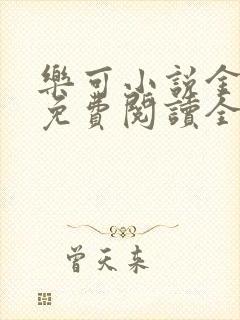 樂可小說全
免費閱讀全
曾天来